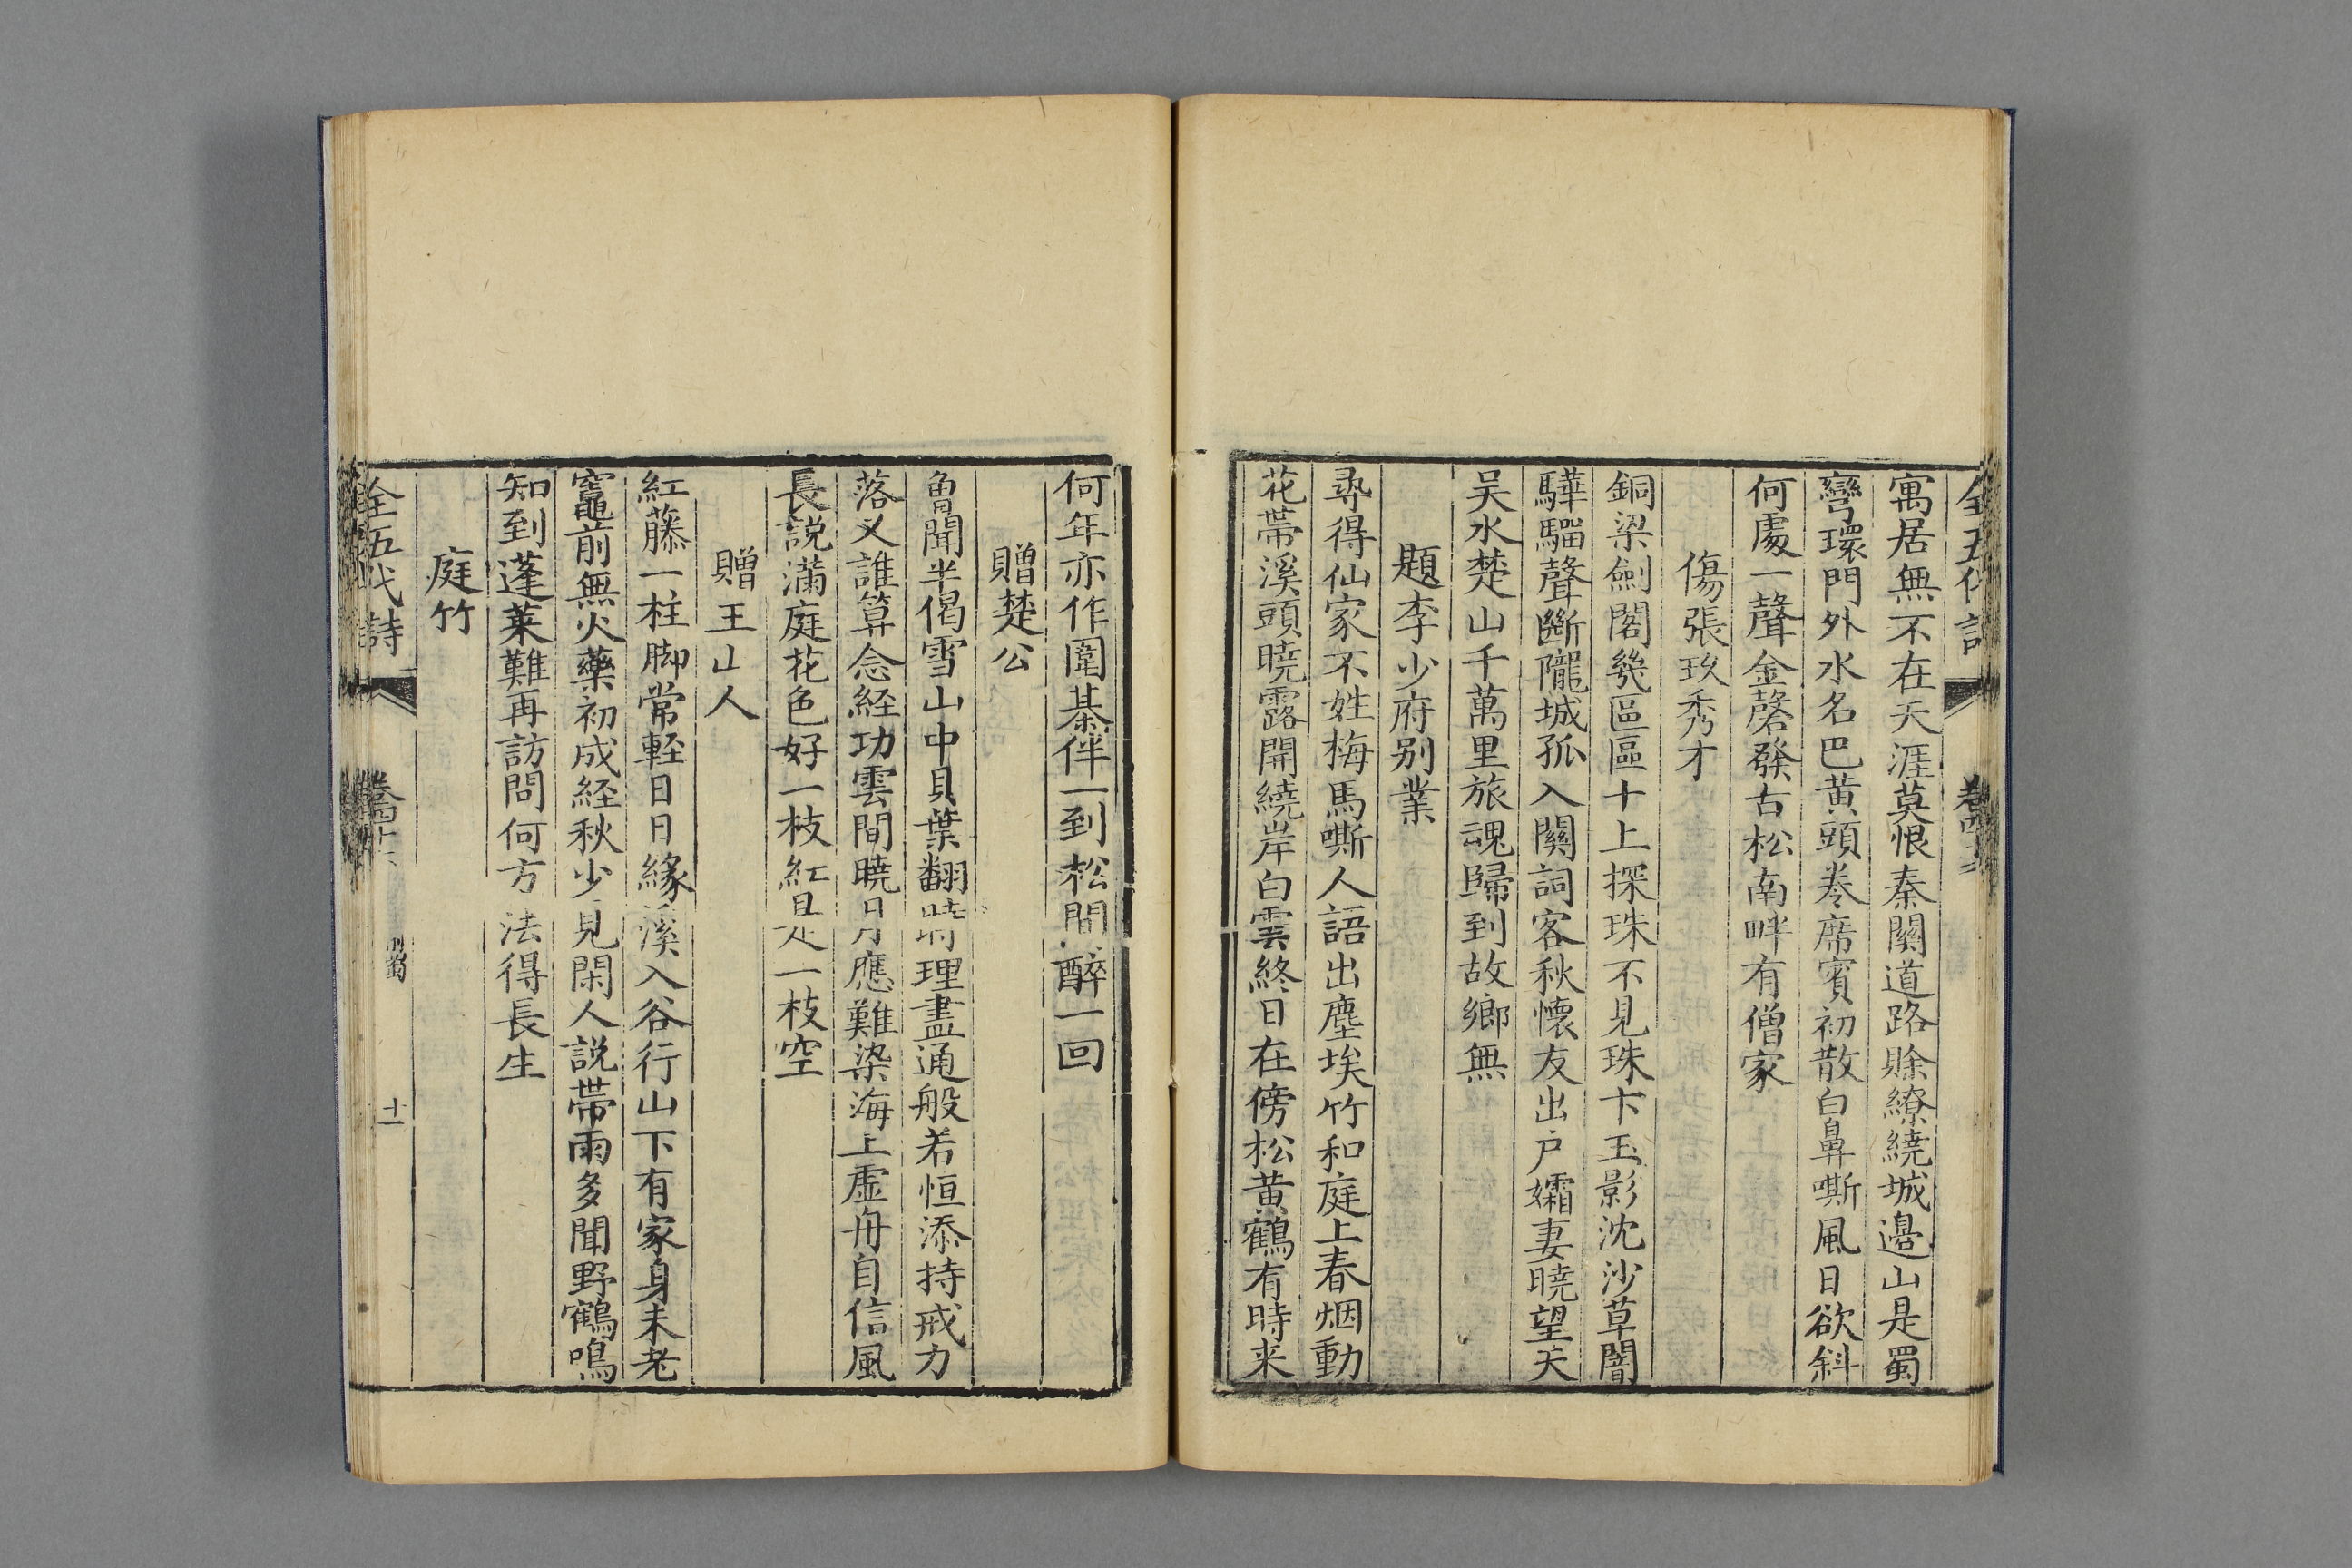 全五代詩
寓居無不在天涯莫恨秦關道路賖繚繞城邊山是蜀
彎環門外水名巴黄頭卷席賓初散白鼻嘶風日欲斜
何處一聲金磬發古松南畔有僧家
傷張玖秀才
銅梁劍閣幾區區十上探珠不見珠卞玉影沈沙草闇
驊騮聲斷隴城孤入關詞客秋懐友出户孀妻曉望夫
吴水楚山千萬里旅魂歸到故鄉無
題李少府别業
尋得仙家不姓梅馬嘶人語出塵埃竹和庭上春烟動
花帶溪頭曉露開繞岸白雲終日在傍松黄鶴有時来
何年亦作圍棊伴一到松間醉一回
贈楚公
魯聞半偈雪山中貝葉翻時理盡通般若恒添持戒力
落义誰算念経功雲間曉月應難染海上虚舟自信風
長説滿庭花色好一枝紅是一枝空
贈王山人
紅藤一柱脚常輕日日緣溪入谷行山下有家身未老
竈前無火藥初成経秋少見閑人説帶雨多聞野鶴鳴
知到蓬莱難再訪問何方法得長生
庭竹
全五代詩
前蜀
十一